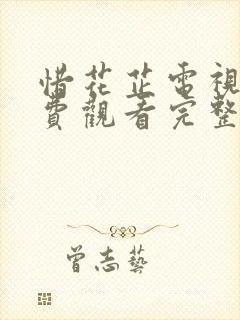 惜花芷電視
費觀看完整
曾志藝